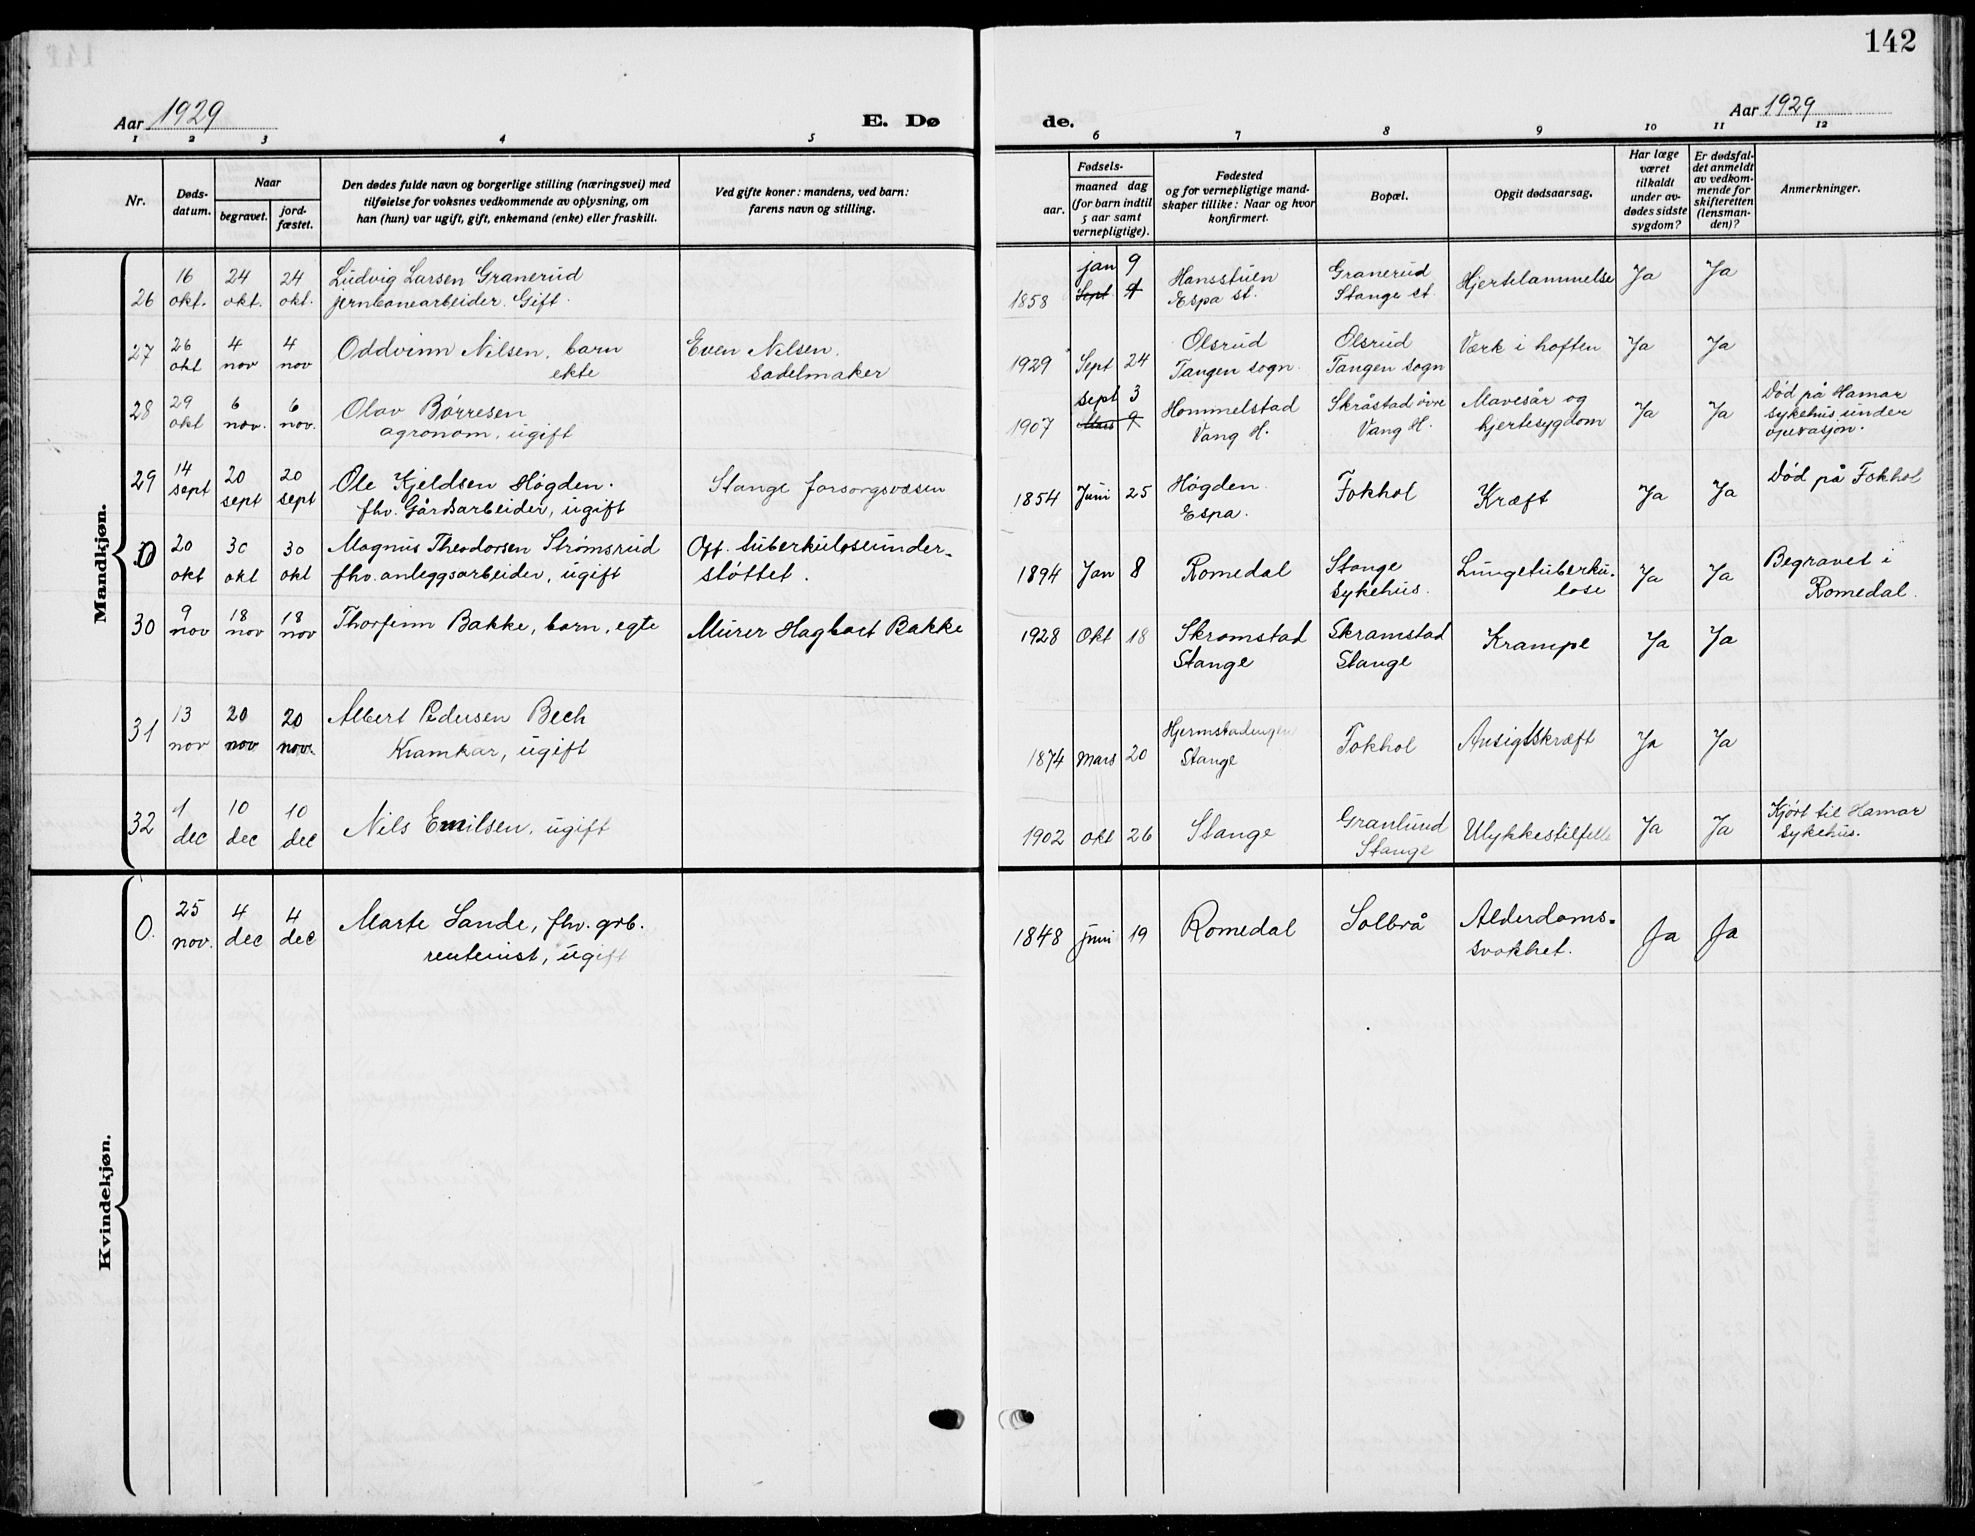 142
Aar 1929
E. Dø
de.
Aar 1929
1 2 3 4 5 6 7 8 9 10 11 12
Nr.
Døds-
datum.
Naar
begravet.
jord-
fæstet.
Den dødes fulde navn og borgerlige stilling (næringsvei) med
tilføielse for voksnes vedkommende av oplysning, om
han (hun) var ugift, gift, enkemand (enke) eller fraskilt.
Ved gifte koner: mandens, ved barn:
farens navn og stilling.
Fødsels-
aar.
maaned dag
(for barn indtil
5 aar samt
vernepligtige).
Fødested
og for vernepligtige mand-
skaper tillike: Naar og hvor
konfirmert.
Bopæl.
Opgit dødsaarsag.
Har læge
været
tilkaldt
under av-
dødes sidste
sygdom?
Er dødsfal-
det anmeldt
av vedkom-
mende for
skifteretten
(lensman-
den)?
Anmerkninger.
Mandkjøn.
26
16
okt.
24
okt.
24
okt.
Ludvig Larsen Granerud
jernbanearbeider. Gift.
1858
jan 9
Sept 4
Hansstuen
Espa st.
Granerud
Stange st.
Hjertelammelse
Ja
Ja
27
26
okt
4
nov
4
nov
Oddvinn Nilsen, barn
ekte
Even Nilsen.
Sadelmaker
1929 Sept 24
Olsrud
Tangen sogn.
Olsrud
Tangen sogn
Værk i hoften
Ja
Ja
28
29
okt
6
nov.
6
nov.
Olav Børresen
agronom, ugift
1907
sept 3
Mars 9
Hommelstad
Vang H.
Skråstad øvre
Vang H.
Mavesår og
hjertesygdom
Ja
Ja
Død på Hamar
sykehus under
operasjon.
29
14
sept
20
sept
20
sept
Ole Kjeldsen Høgden.
fhv. Gårdsarbeider, ugift
Stange forsorgsvæsen
1854 Juni 25
Høgden.
Espa.
Fokhol
Kræft
Ja
Ja
Død på Fokhol
0
20
okt
30
okt
30
okt
Magnus Theodorsen Strømsrud
fhv. anleggsarbeider, ugift
Off. tuberkuloseunder-
støttet.
1894 Jan 8
Romedal
Stange
sykehus.
Lungetuberku-
lose
Ja
Ja
Begravet i
Romedal.
30
9
nov
18
nov
18
nov
Thorfinn Bakke, barn, egte
Murer Hagbart Bakke
1928 Okt 18
Skramstad
Stange
Skramstad
Stange
Krampe
Ja
Ja
31
13
nov
20
nov
20
nov.
Albert Pedersen Bech
Kramkar, ugift
1874 Mars 20
Stange
Fokhol
Ansigtskræft
Ja
Ja
32
1
dec
10
dec
10
dec
Nils Emilsen, ugift
1902 okt 26
Stange
Granlund
Stange
Ulykkestilfelle
Ja
Ja
Kjørt til Hamar
sykehus.
Kvindekjøn.
0.
25
nov.
4
dec
4
dec
Marte Sande, fhv. grb.
rentenist, ugift
1848 juni 19
Romedal
Solbrå
Alderdoms-
svakhet.
Ja
Ja